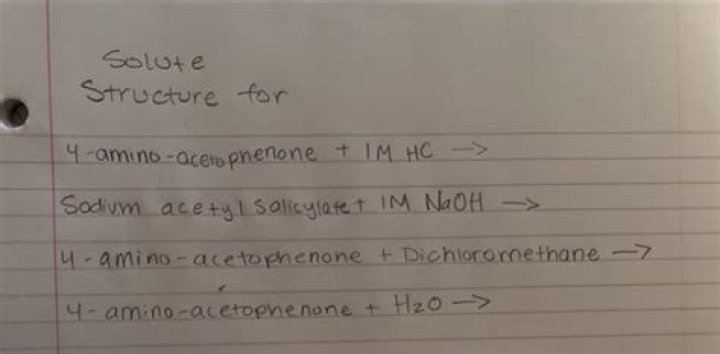 Solute
Structure for
4-amino-acetophenone + 1M HC →
Sodium acetyl salicylate + 1M NaOH →
4-amino-acetophenone + Dichloromethane →
4-amino-acetophenone + H2O →